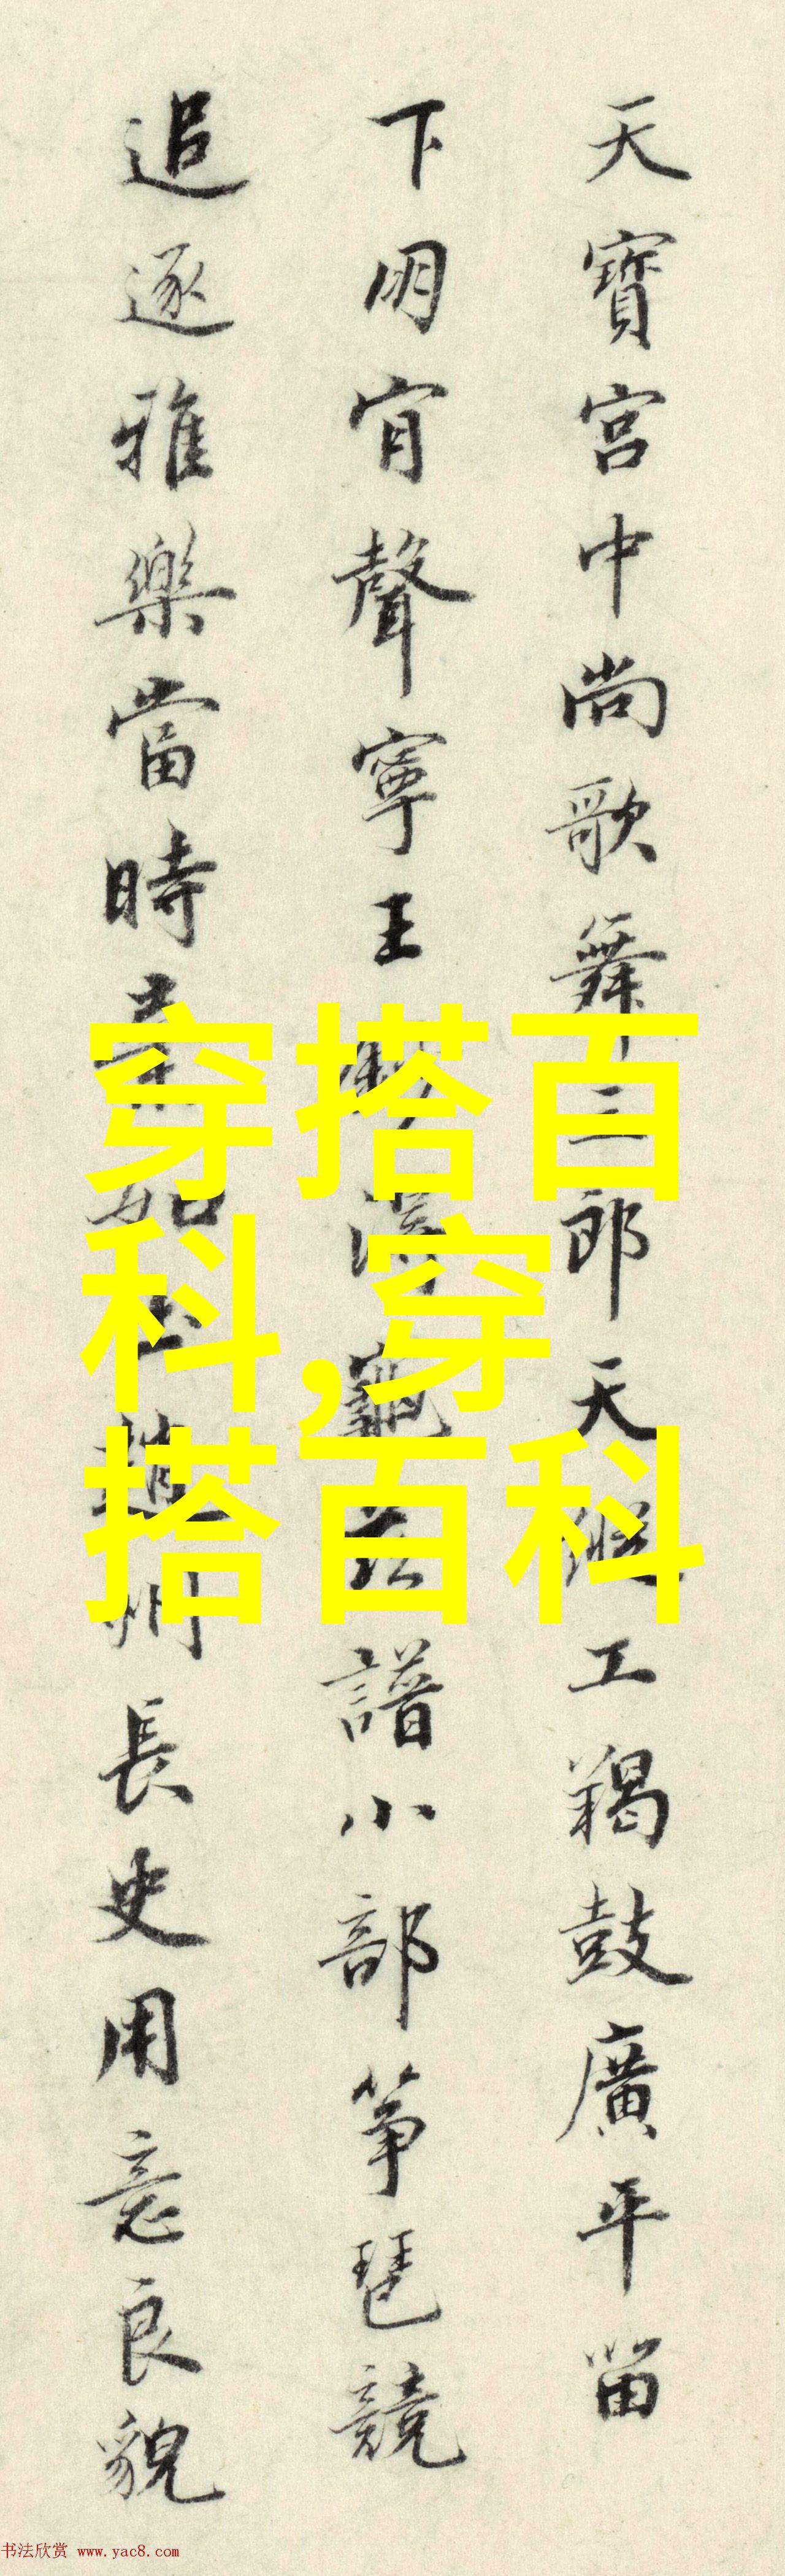 天寶宮中尚歌舞三郎天縱工羯鼓廣平留
下朋肎聲寧王龜茲譜小部箏琶競
追逐雅樂當時棄如土趙州長史用意良貌
穿搭百
科,穿
搭百科
书法欣赏 www.yac8.com